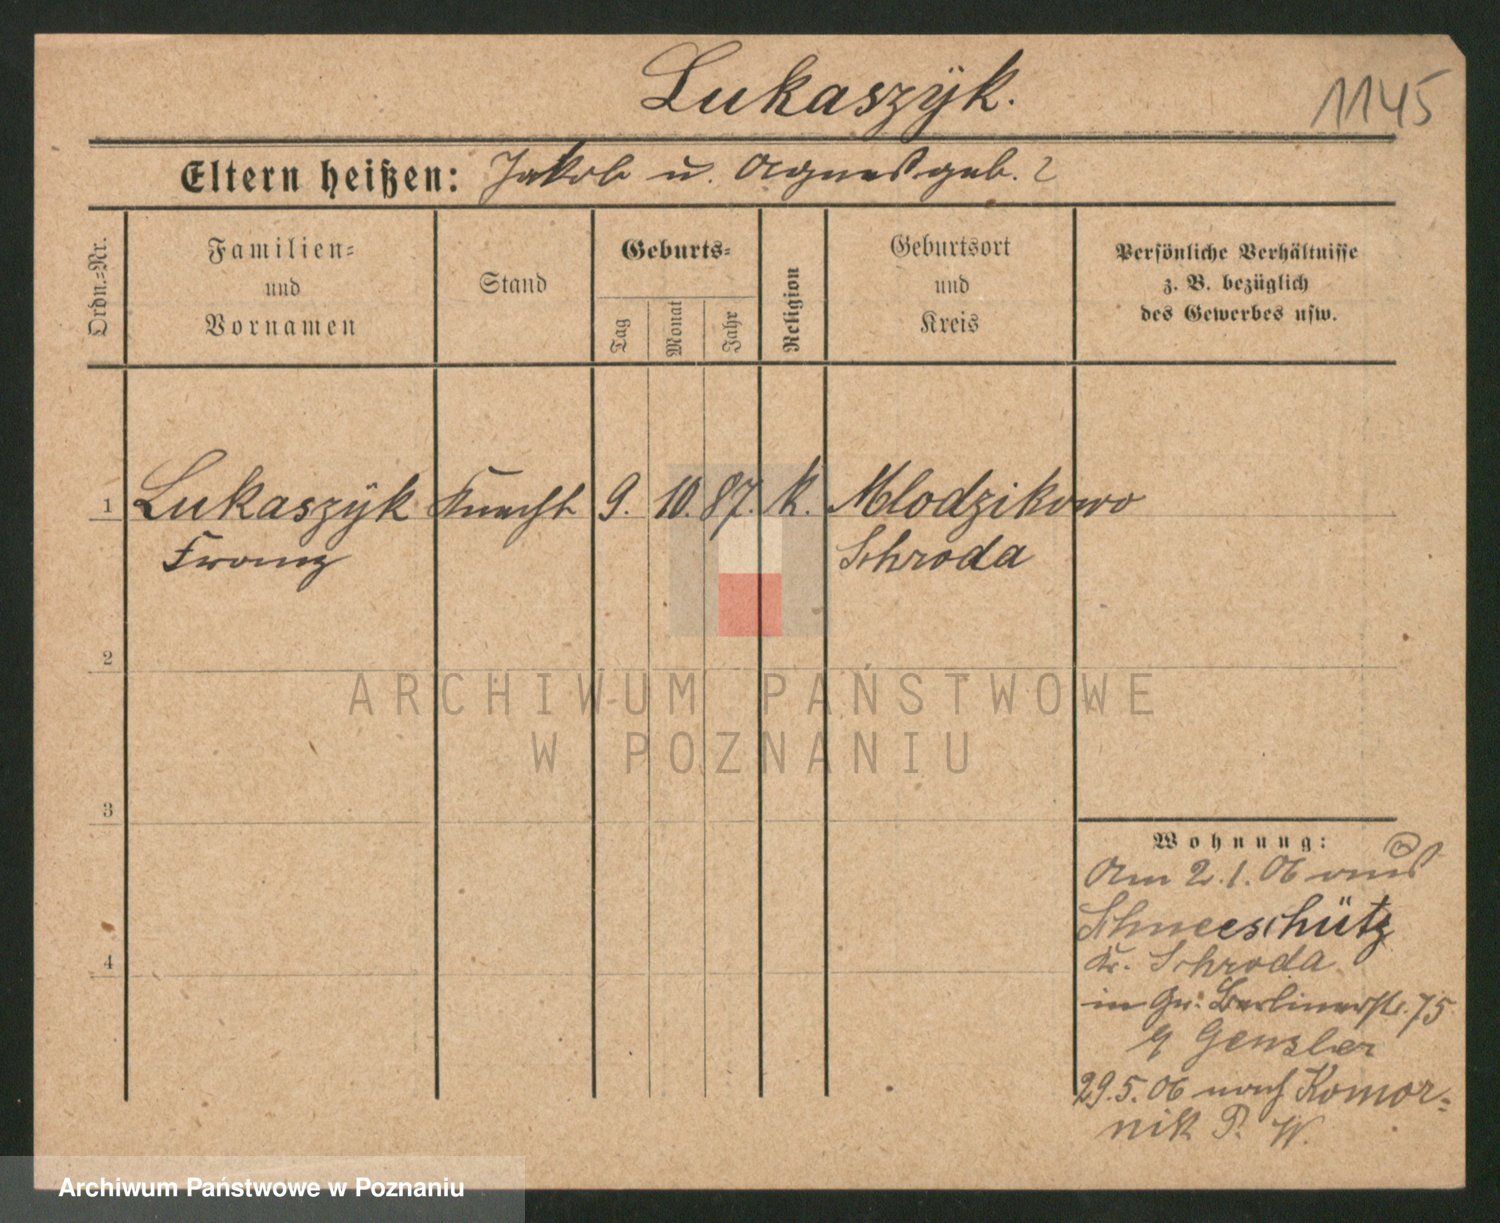 Lukaszÿk.
1145
Eltern heißen: Jakob u. Agnes geb. ?
Ordn.=Nr.
Familien=
und
Vornamen
Stand
Geburts=
Tag
Monat
Jahr
Religion
Geburtsort
und
Kreis
Persönliche Verhältnisse
z. B. bezüglich
des Gewerbes usw.
1 Lukaszÿk Knecht 9. 10. 87. k. Mlodzikowo
Franz Schroda
2
ARCHIWUM PAŃSTWOWE
W POZNANIU
3
Wohnung:
Am 2.1.06 aus
Schneeschütz
Kr. Schroda
in Gr. Berlinerstr. 75
Gensler
29.5.06 nach Komor-
nik P. W.
4
Archiwum Państwowe w Poznaniu